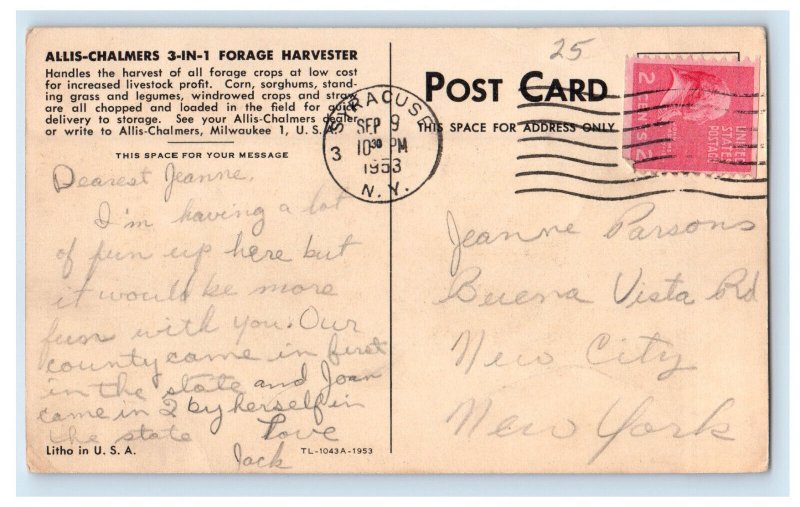 ALLIS-CHALMERS 3-IN-1 FORAGE HARVESTER
Handles the harvest of all forage crops at low cost
for increased livestock profit. Corn, sorghums, stand-
ing grass and legumes, windrowed crops and straw
are all chopped and loaded in the field for quick
delivery to storage. See your Allis-Chalmers dealer
or write to Allis-Chalmers, Milwaukee 1, U.S.A.
THIS SPACE FOR YOUR MESSAGE
Dearest Jeanne,
I'm having a lot
of fun up here but
it would be more
fun with you. Our
county came in first
in the state and Joan
came in 2 by herself in
the state Love
Jack
Litho in U. S. A.
TL-1043A-1953
SYRACUSE
SEP 9
10 30 PM
1953
N. Y.
3
25
POST CARD
THIS SPACE FOR ADDRESS ONLY
2 CENTS 2
UNITED
STATES
POSTAGE
Jeanne Parsons
Buena Vista Rd
New City
New York